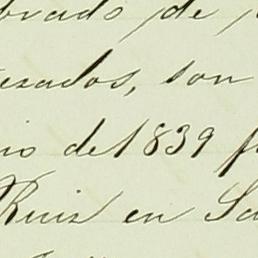 brado de
ezados, son
io de 1839
Ruiz en Sa